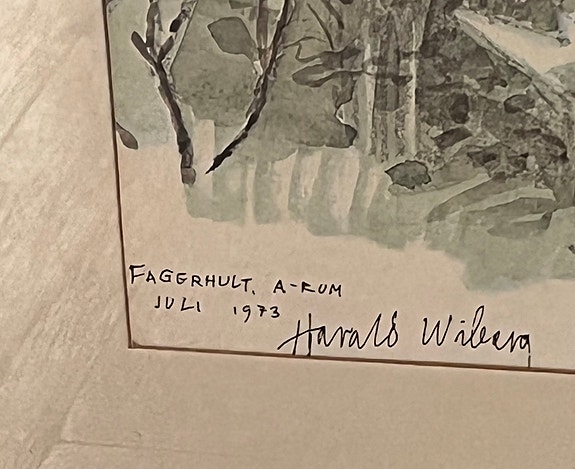 FAGERHULT, A-RUM
JULI 1973
Harald Wiberg